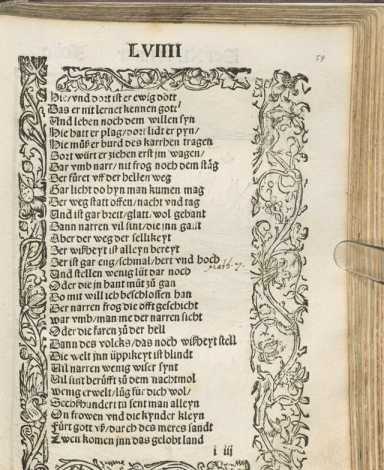 LVIIII
59
Hie/ vnd dort ist er ewig dott
Das er nit lernet kennen gott/
Vnd leben noch dem willen syn
Hie hatt er plag/ dort lidt er pyn/
Hie můß er burd des karrhen tragen
Dort würt er ziehen erst jm wagen/
Dar vmb narr/ nit frog noch dem stäg
Der füret vff der hellen weg
Gar licht do hyn man kumen mag
Der weg statt offen/ nacht vnd tag
Vnd ist gar breit/ glatt/ wol gebant
Dann narren vil sint/ die jnn gant
Aber der weg der sellikeyt
Der wißheyt ist alleyn bereyt
Der ist gar eng/ schmal/ hert vnd hoch
Matth. 7.
Vnd stellen wenig lüt dar noch
Oder die jn hant můt zů gan
Do mit will ich beschlossen han
Der narren frog die offt geschicht
war vmb/ man me der narren sicht
Oder die faren zů der hell
Dann des volcks/ das noch wißheyt stell
Die welt jnn üppikeyt ist blindt
Vil narren wenig wiser synt
Vil sint berüfft zů dem nachtmol
wenig erwelt/ lůg für dich wol/
Sechßhundert tusent man alleyn
On frowen vnd die kynder kleyn
Fürt gott vß/ durch des meres sandt
Zwen komen jnn das gelobt land
i iij